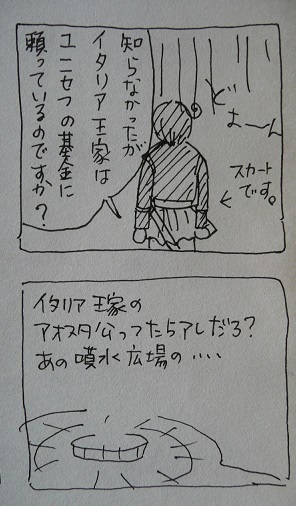 知らなかったが
イタリア王家は
ユニセフの基金に
頼っているのですか?
どよ〜ん
スカート
です。
イタリア王家の
アオスタ公ってたらアレだろ?
あの噴水広場の‥‥